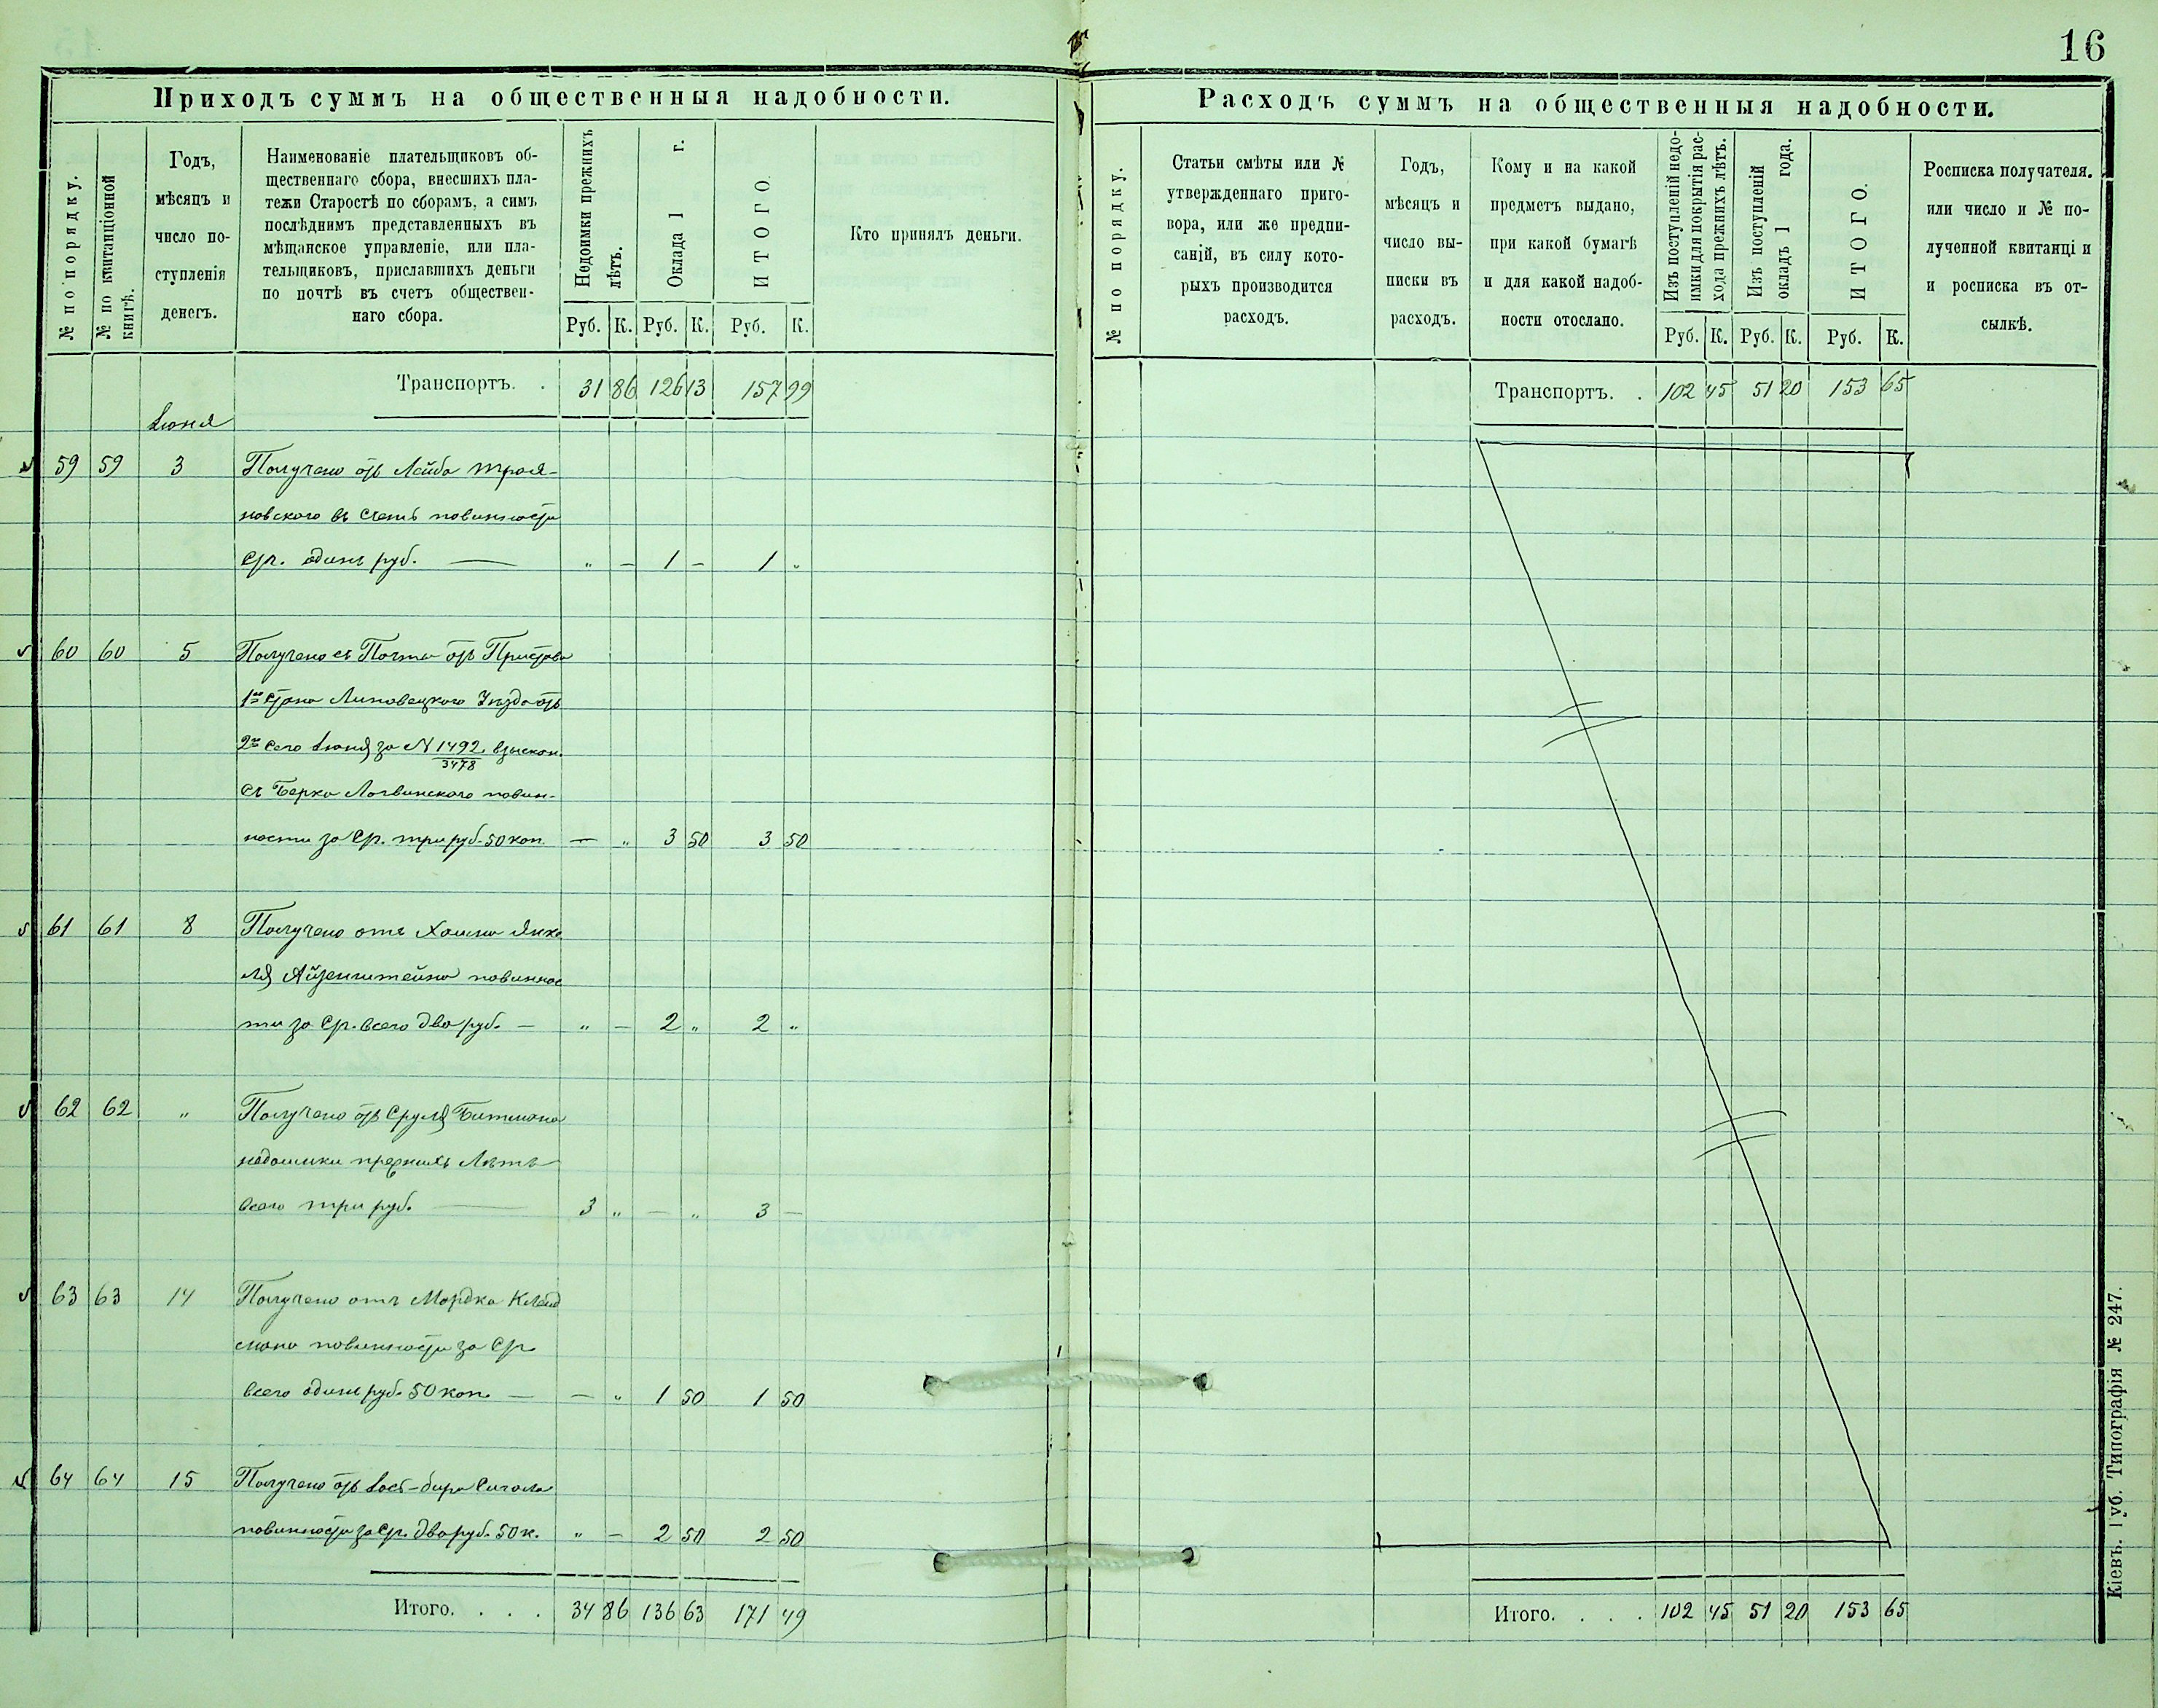 16
Приходъ суммъ на общественныя надобности.
№ по порядку.
№ по квитанціонной
книгѣ.
Годъ,
мѣсяцъ и
число по-
ступленія
денегъ.
Наименованіе плательщиковъ об-
щественнаго сбора, внесшихъ пла-
тежи Старостѣ по сборамъ, а симъ
послѣднимъ представленныхъ въ
мѣщанское управленіе, или пла-
тельщиковъ, приславшихъ деньги
по почтѣ въ счетъ обществен-
наго сбора.
Недоимки прежнихъ
лѣтъ.
Оклада 1 г.
ИТОГО.
Кто принялъ деньги.
Руб. К. Руб. К. Руб. К.
Транспортъ. . 31 86 126 13 157 99
Іюня
59 59 3 Получено отъ Лейба Троя-
новского въ счетъ повинности
Ср. одинъ руб. — „ — 1 — 1 „
60 60 5 Получено съ Почты отъ Пристава
1го Стана Липовецкого Уѣзда отъ
2го сего Іюня за № 1492 взыскан.
3478
съ Берка Логвинского повин-
ности за Ср. три руб. 50 коп — „ 3 50 3 50
61 61 8 Получено отъ Хаима Янке
ля Айзенштейна повиннос
ти за Ср. всего два руб. — „ — 2 „ 2 „
62 62 „ Получено отъ Сруля Битмана
недоимки прежнихъ Лѣтъ
всего три руб. — 3 „ — „ 3 —
63 63 14 Получено отъ Мордка Клейд
мана повинности за Ср.
всего одинъ руб. 50 коп. — — „ 1 50 1 50
64 64 15 Получено отъ
повинности за Ср. два руб. 50 к. „ — 2 50 2 50
Итого. . . . 34 86 136 63 171 49
Расходъ суммъ на общественныя надобности.
№ по порядку.
Статьи смѣты или №
утвержденнаго приго-
вора, или же предпи-
саній, въ силу кото-
рыхъ производится
расходъ.
Годъ,
мѣсяцъ и
число вы-
писки въ
расходъ.
Кому и на какой
предметъ выдано,
при какой бумагѣ
и для какой надоб-
ности отослано.
Изъ поступленій недо-
имки для покрытія рас-
хода прежнихъ лѣтъ.
Изъ поступленій
окладъ 1 года.
ИТОГО.
Росписка получателя.
или число и № по-
лученной квитанці и
и росписка въ от-
сылкѣ.
Руб. К. Руб. К. Руб. К.
Транспортъ. . 102 45 51 20 153 65
Итого. . . . 102 45 51 20 153 65
Кіевъ. Губ. Типографія № 247.